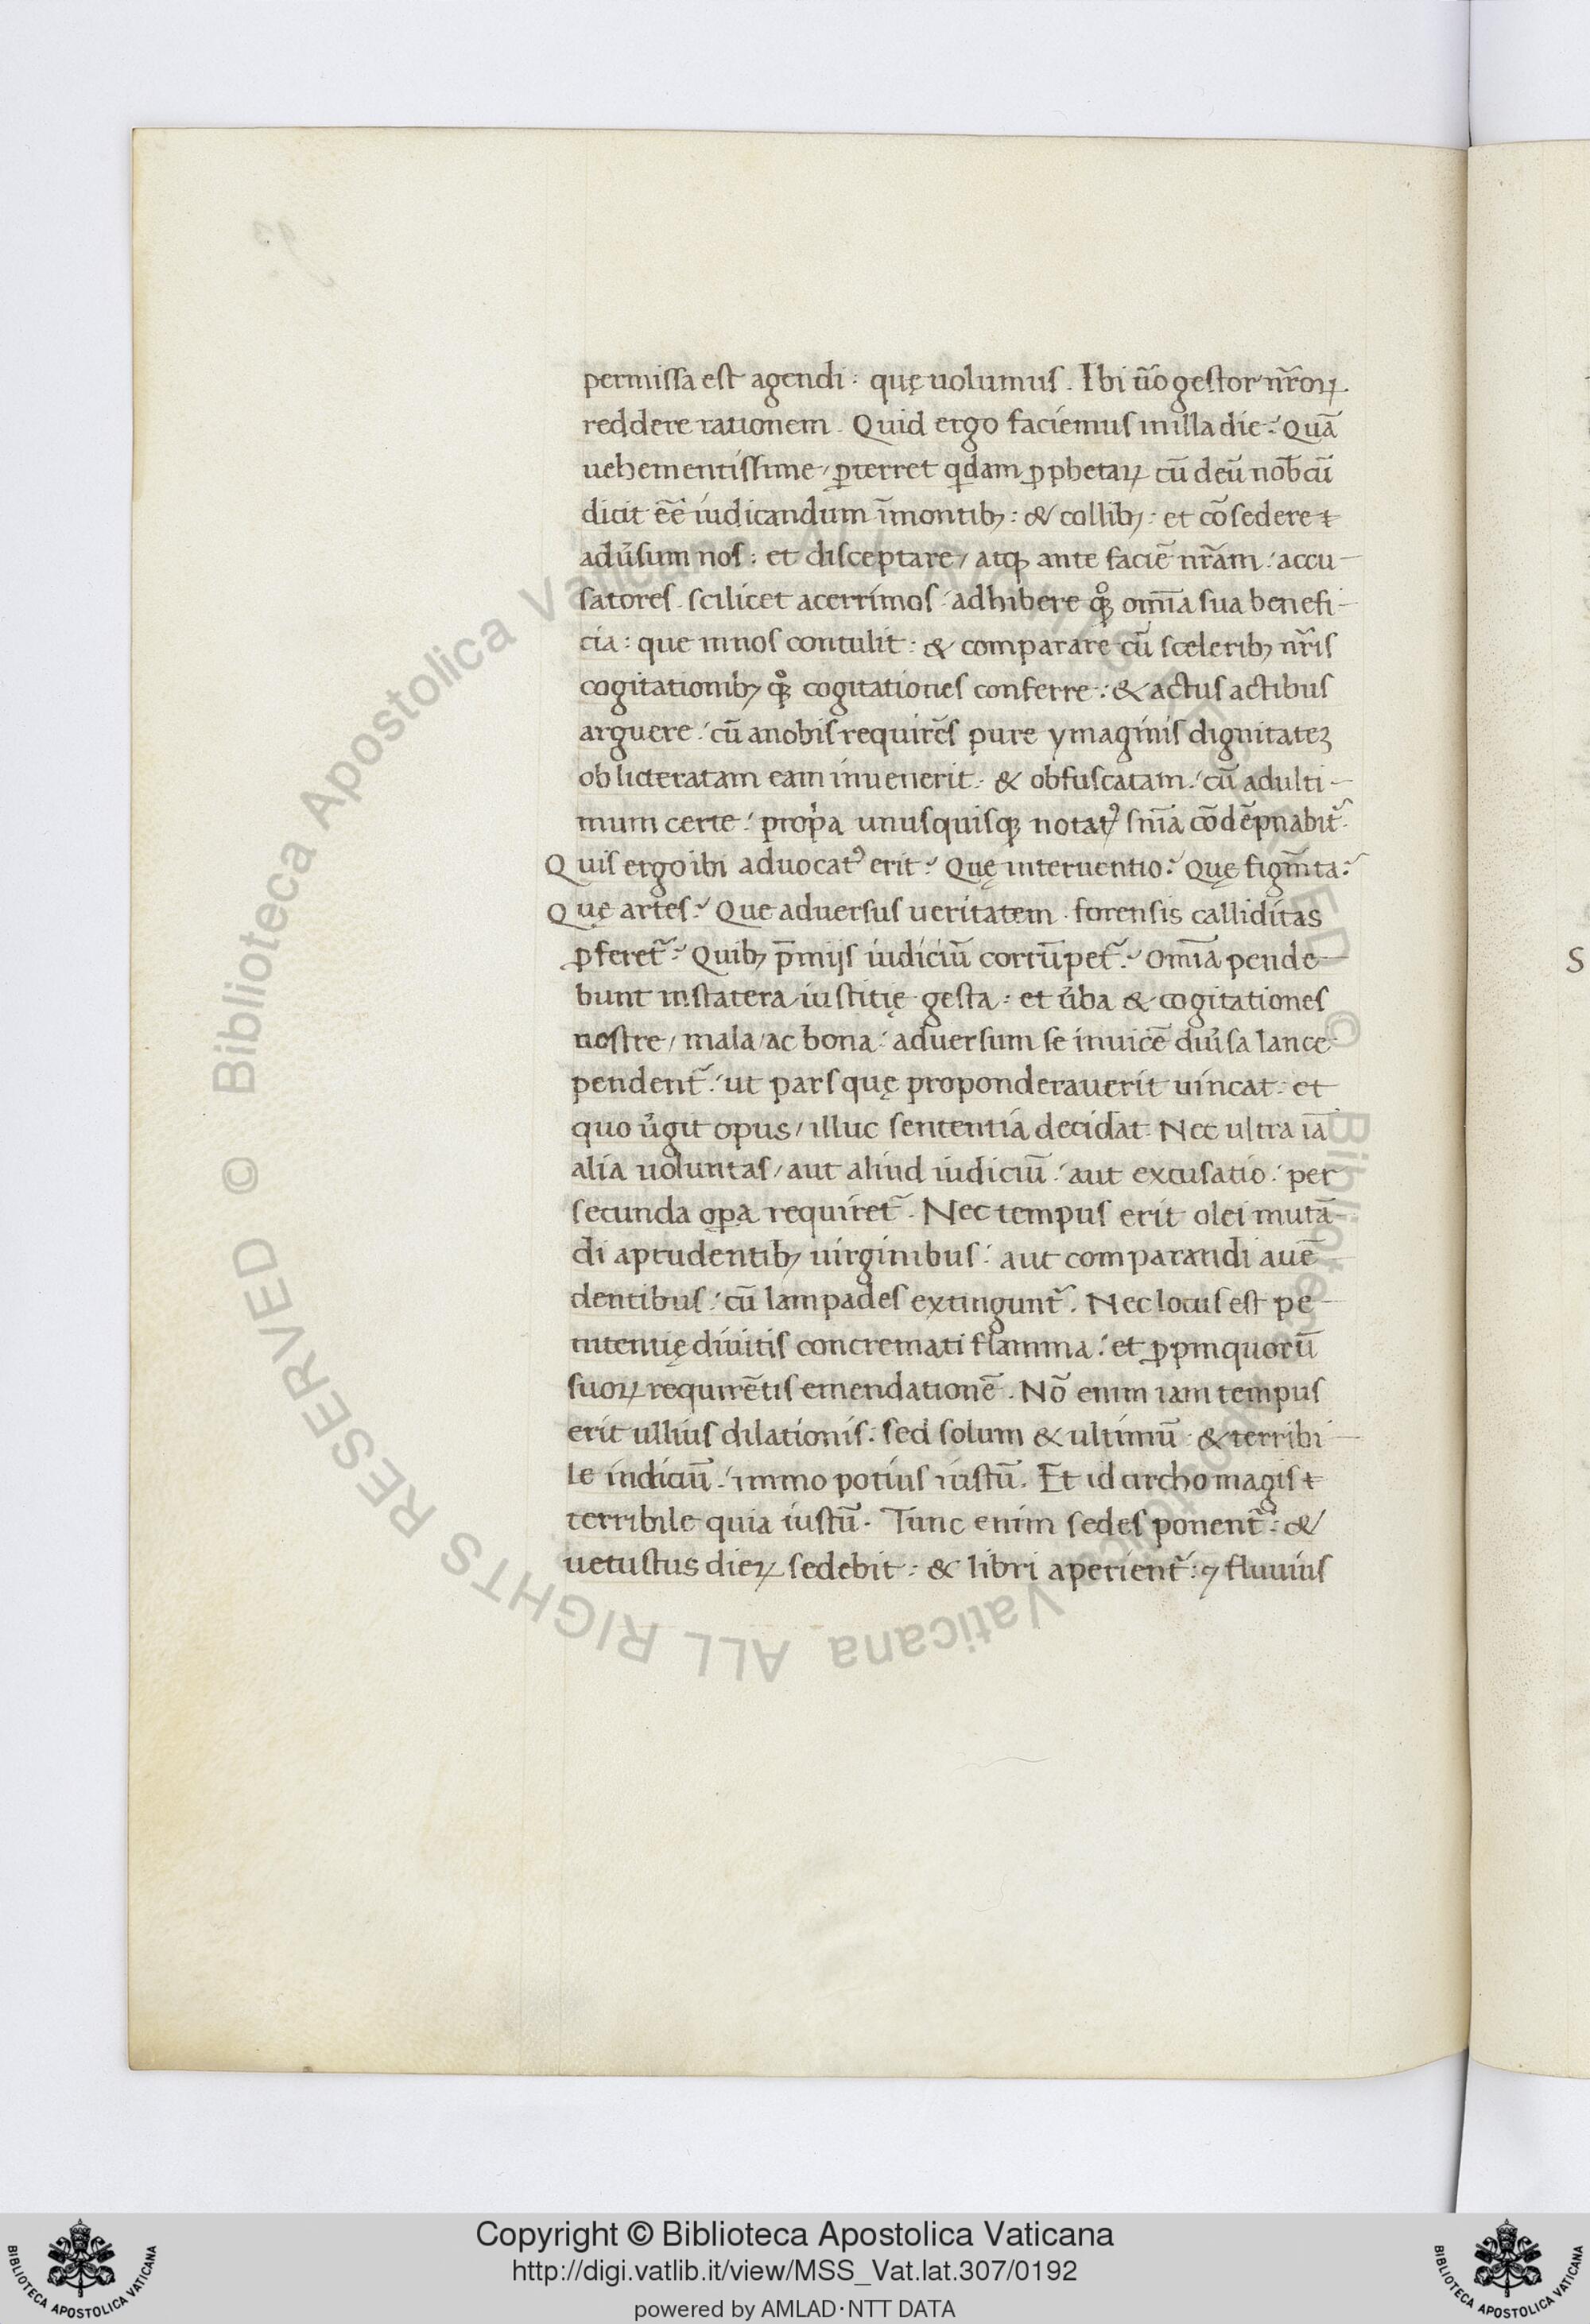 permissa est agendi : quę uolumus . Ibi ũo gestor nr̃oꝝ
reddere rationem . Quid ergo faciemus in illa die ? Quã
uehementissime / ꝑterret qͥdam ꝓphetaꝝ cũ deũ nob̃cũ
dicit eẽ iudicandum ĩmontibꝫ : & collibꝫ : et cõsedere
adũsum nos : et disceptare / atqꝫ ante faciẽ nr̃am : accu-
satores . scilicet acerrimos : adhibere qͦꝫ omĩa sua benefi-
cia : que in nos contulit : & comparare cũ sceleribꝫ nr̃is
cogitationibꝫ qͦꝫ cogitationes conferre : & actus actibus
arguere : cũ anobis requirẽs pure ymaginis dignitateꝫ
obliteratam eam inuenerit : & obfuscatam : cũ adulti-
mum certe : propͥa unusquisqꝫ notatꝰ sn̄ia cõdẽpnabit̃ .
Quis ergo ibi aduocatꝰ erit ? Quę interuentio ? Quę figm̃ta ?
Quę artes ? Que aduersus ueritatem . forensis calliditas
ꝓferet̃ ? Quibꝫ p̃mijs iudiciũ corrũpet̃ ? Omĩa pende-
bunt in statera iustitię gesta : et ũba & cogitationes
nostre / mala / ac bona : aduersum se inuicẽ diũsa lance
pendent̃ : ut pars quę proponderauerit uincat : et
quo ũgit opus / illuc sententia decidat . Nec ultra iã
alia uoluntas / aut aliud iudiciũ : aut excusatio : per
secunda oꝑa requiret̃ . Nec tempus erit olei mutã-
di aprudentibꝫ uirginibus : aut comparandi auẽ-
dentibus : cũ lampades extingunt̃ . Nec locus est pe-
nitentię diuitis concremati flamma : et ꝓpinquorũ
suoꝝ requirẽtis emendationẽ . Nõ enim iam tempus
erit ullius dilationis : sed solum & ultimũ : & terribi-
le indiciũ : immo potius iustũ . Et idcircho magis
terribile quia iustũ . Tunc enim sedes ponent̃ : &
uetustus dieꝝ sedebit : & libri aperient̃ : ⁊ fluuius
S
Copyright © Biblioteca Apostolica Vaticana
http://digi.vatlib.it/view/MSS_Vat.lat.307/0192
powered by AMLAD·NTT DATA
BIBLIOTECA APOSTOLICA VATICANA
BIBLIOTECA APOSTOLICA VATICANA
© Biblioteca Apostolica Vaticana ALL RIGHTS RESERVED © Biblioteca Apostolica Vaticana ALL RIGHTS RESERVED